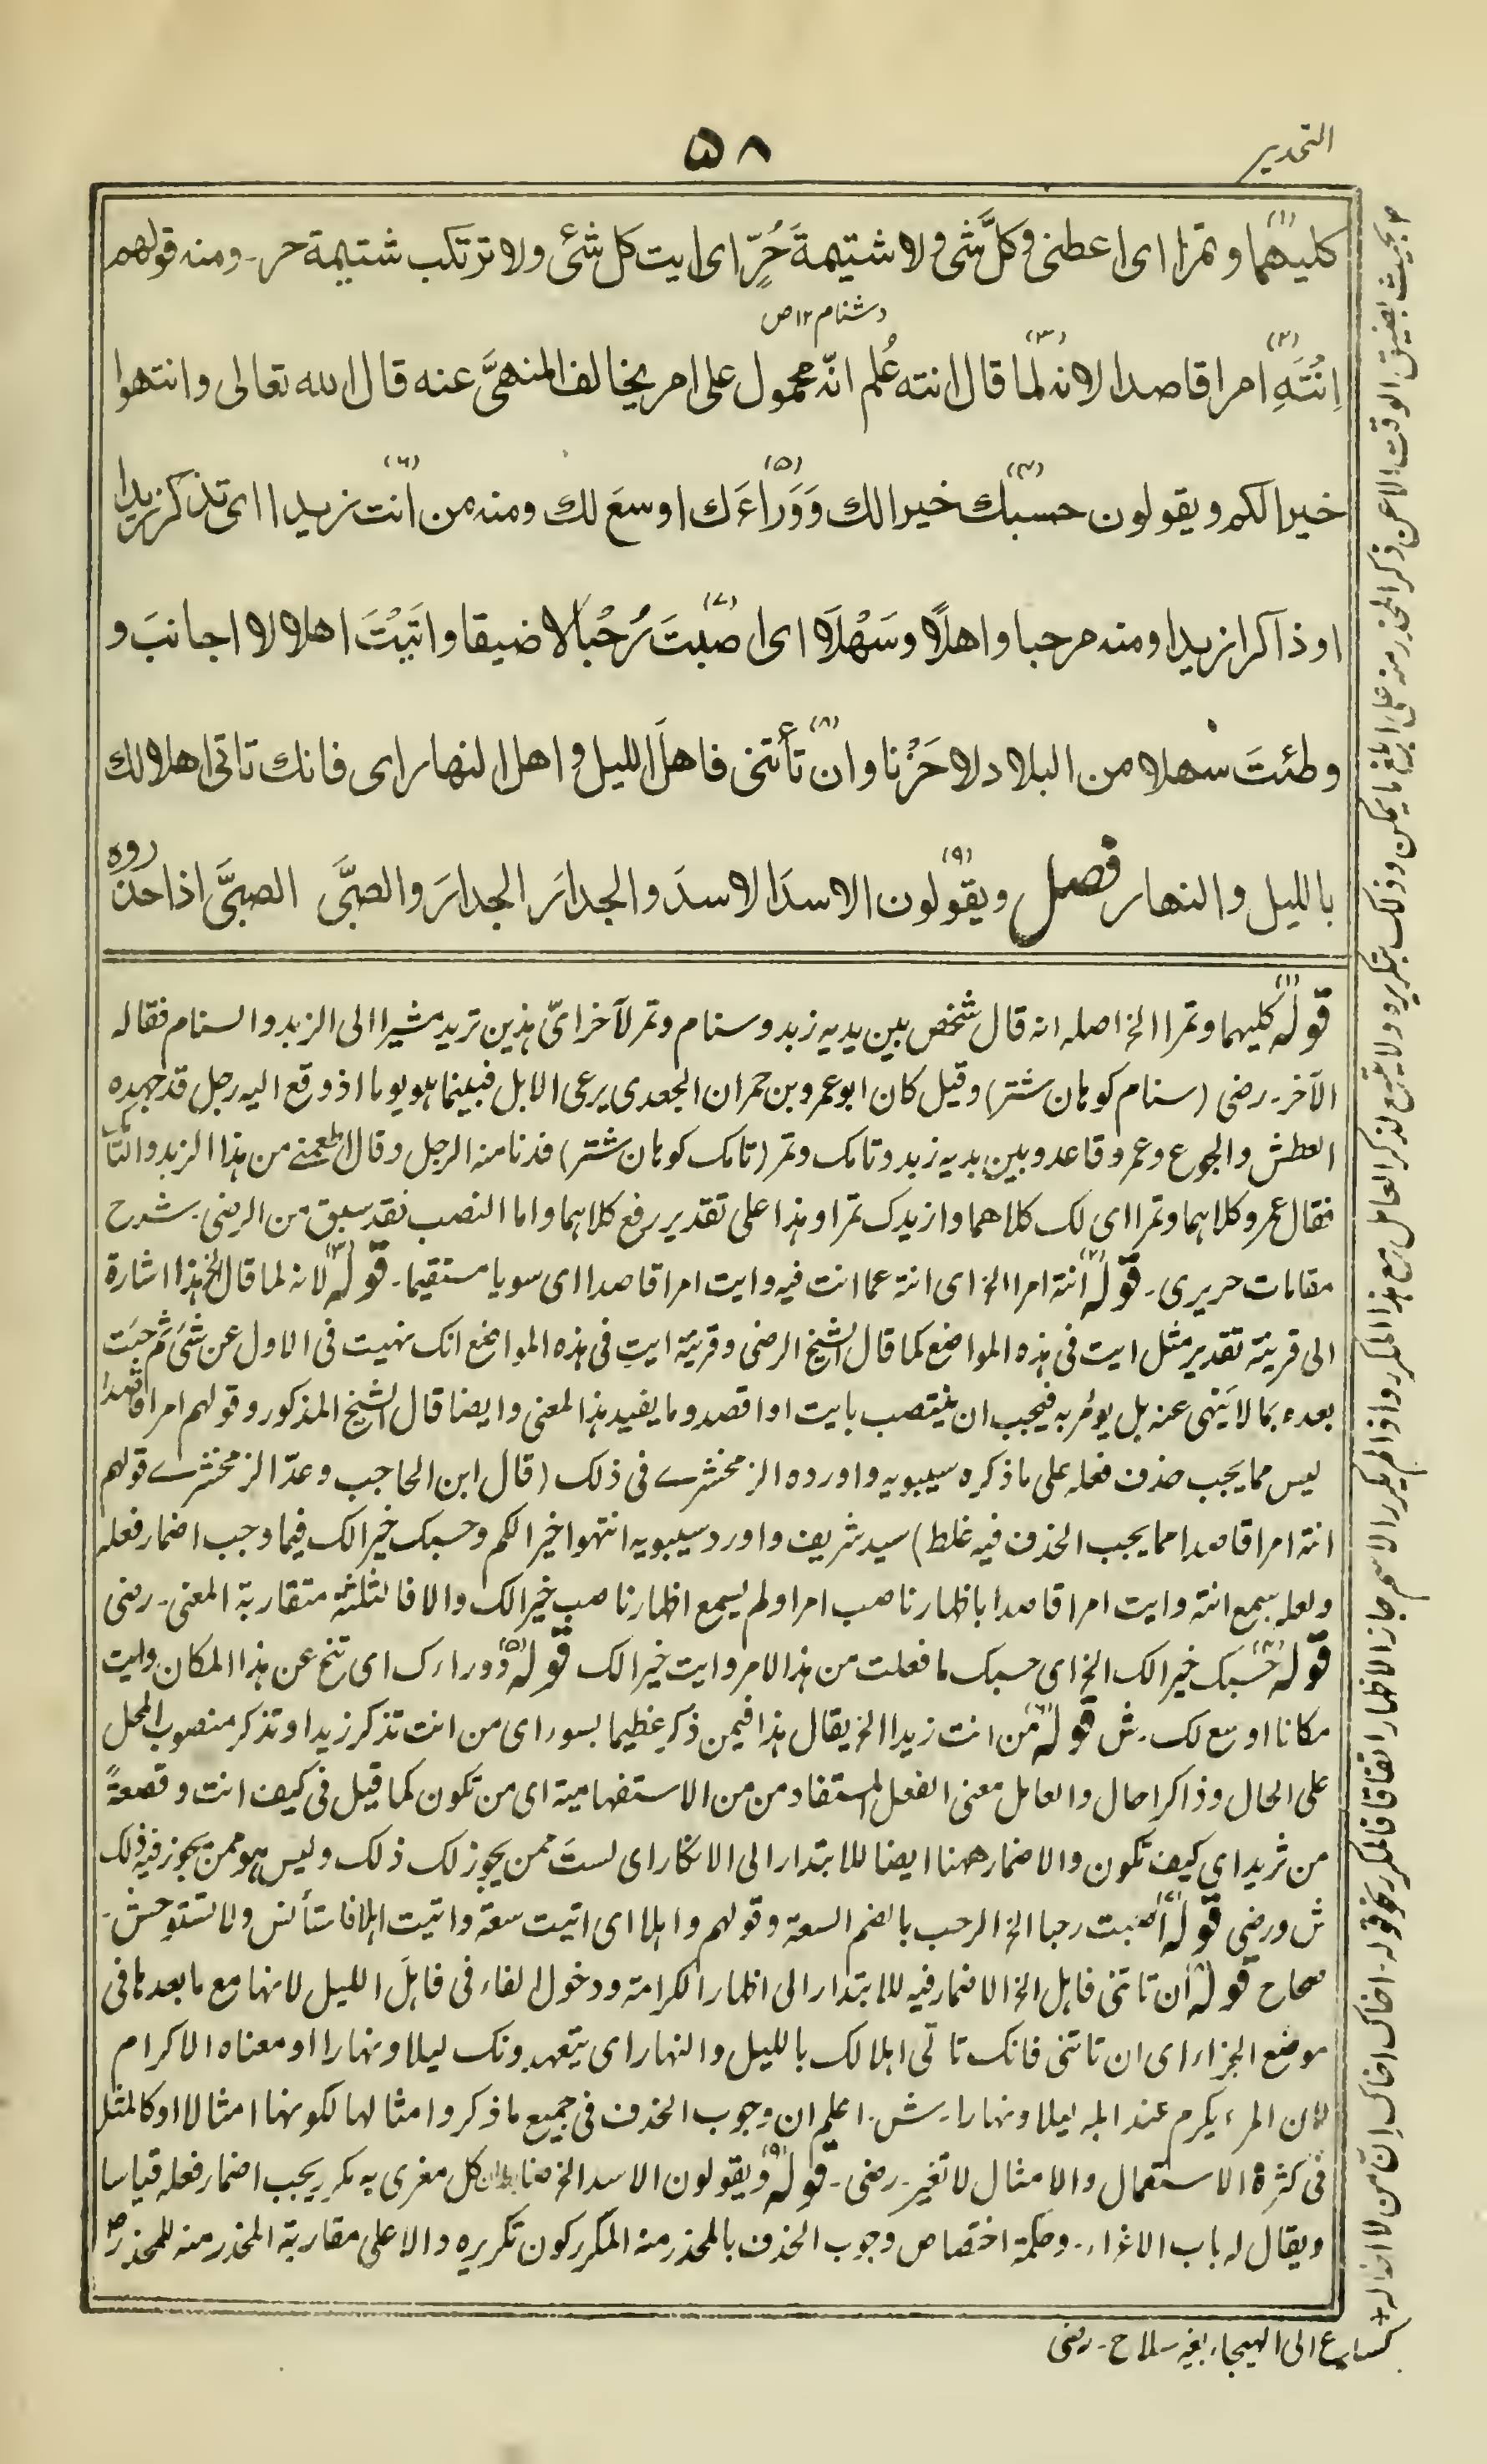 التحذير
۵۸
كليهما(١) وتمرا اى اعطنى وكلَّ شئ ولا شتيمةَ حُرٍّ اى ايت كل شئ ولا ترتكب شتيمة حر۔ ومنه قولهم
دشنام ۱۲ ص
اِنْتَهِ(٢) امرا قاصدا لانه لما(٣) قال انته عُلم انّه محمول على امر يخالف المنهىَّ عنه قال الله تعالى وانتهوا
خيرا لكم ويقولون حسبك(٤) خيرا لك وَوَراءَك(٥) اوسعَ لك ومنه من انت(٦) زيدا اى تذكر زيدا
او ذاكرا زيدا ومنه مرحبا واهلًا وسَهْلًا اى اصبتَ(٧) رُحْبًا لا ضيقا واتَيْتَ اهلا لا اجانبَ و
وطئتَ سهلا من البلاد لا حَزْنا وان تأتنى(٨) فاهلَ الليل واهل النهار اى فانك تاتى اهلا لك
بالليل والنهار فصل ويقولون(٩) الاسدَ الاسدَ والجدارَ الجدارَ والصبىَّ الصبىَّ اذا حذروه
قوله(١) كليهما وتمرا الخ اصله انه قال شخص بين يديه زبد وسنام وتمر لآخر اىّ هذين تريد مشيرا الى الزبد والسنام فقاله
الآخر۔ رضى (سنام كوہان شتر) وقيل كان ابو عمرو بن حمران الجعدى يرعى الابل فبينما هو يوما اذ وقع اليه رجل قد جهده
العطش والجوع وعمرو قاعد وبين يديه زبد وتامك وتمر (تامك كوہان شتر) فدنا منه الرجل وقال اطعمنے من هذا الزبد والتامك
فقال عمرو كلاهما وتمرا اى لك كلاهما وازيدك تمرا وهذا على تقدير رفع كلاهما واما النصب فقد سبق من الرضى۔ شرح
مقامات حريرى۔ قوله(٢) انته امرا الخ اى انته عما انت فيه وايت امرا قاصدا اى سويا مستقيما۔ قوله(٣) لانه لما قال الخ هذا اشارة
الى قرينة تقدير مثل ايت فى هذه المواضع كما قال الشيخ الرضى وقرينة ايت فى هذه المواضع انك نهيت فى الاول عن شئ ثم جئت
بعده بما لا يَنْهى عنه بل يؤمر به فيجب ان ينتصب بايت او اقصد وما يفيد هذا المعنى وايضا قال الشيخ المذكور وقولهم امرا قاصدا
ليس مما يجب حذف فعله على ما ذكره سيبويه واورده الزمخشرے فى ذلك (قال ابن الحاجب وعدّ الزمخشرے قولهم
انته امرا قاصدا مما يجب الحذف فيه غلط) سيد شريف واورد سيبويه انتهوا خيرا لكم وحسبك خيرا لك فيما وجب اضمار فعله
ولعله سمع انته وايت امرا قاصدا باظهار ناصب امرا ولم يسمع اظهار ناصب خيرا لك والا فالثلثة متقاربة المعنى۔ رضى
قوله(٤) حسبك خيرا لك الخ اى حسبك ما فعلت من هذا الامر وايت خيرا لك قوله(٥) ووراءك اى تنح عن هذا المكان وايت
مكانا اوسع لك۔ ش قوله(٦) من انت زيدا الخ يقال هذا فيمن ذكر عظيما بسوء اى من انت تذكر زيدا وتذكر منصوب المحل
على الحال وذاكرا حال والعامل معنى الفعل المستفاد من من الاستفهامية اى من تكون كما قيل فى كيف انت وقصعةً
من ثريد اى كيف تكون والاضمار ههنا ايضا للابتدار الى الانكار اى لستَ ممن يجوز لك ذلك وليس هو ممن يجوز فيه ذلك
ش ورضى قوله(٧) اصبت رحبا الخ الرحب بالضم السعة وقولهم واهلا اى اتيت سعة واتيت اهلا فاستأنس ولا تستوحش۔
صحاح قوله(٨) ان تاتنى فاهل الخ الاضمار فيه للابتدار الى اظهار الكرامة ودخول الفاء فى فاهلَ الليل لانها مع ما بعدها فى
موضع الجزاء اى ان تاتنى فانك تاتى اهلا لك بالليل والنهار اى يتعهدونك ليلا ونهارا او معناه الاكرام
لان المرء يكرم عند اهله ليلا ونهارا۔ ش۔ اعلم ان وجوب الحذف فى جميع ما ذكر وامثالها لكونها امثالا او كالمثل
فى كثرة الاستعمال والامثال لا تغير۔ رضى۔ قوله(٩) ويقولون الاسد الخ كل مغرى به مكرر يجب اضمار فعله قياسا
ويقال له باب الاغراء۔ وحكمة اختصاص وجوب الحذف بالمحذر منه المكرر كون تكريره دالا على مقاربة المحذر منه للمحذر
بحيث يضيق الوقت الا عن ذكر المحذر منه على ابلغ ما يمكن وذلك بتكريره ولا يتسع لذكر العامل مع هذا المكرر واذا لم يكرر الاسم جاز الاظهار اتفاقا فالمكرر نحو قوله۔ اخاك اخاك اِنّ مَن لا اخا له
كساع الى الهيجاء بغير سلاح۔ رضى